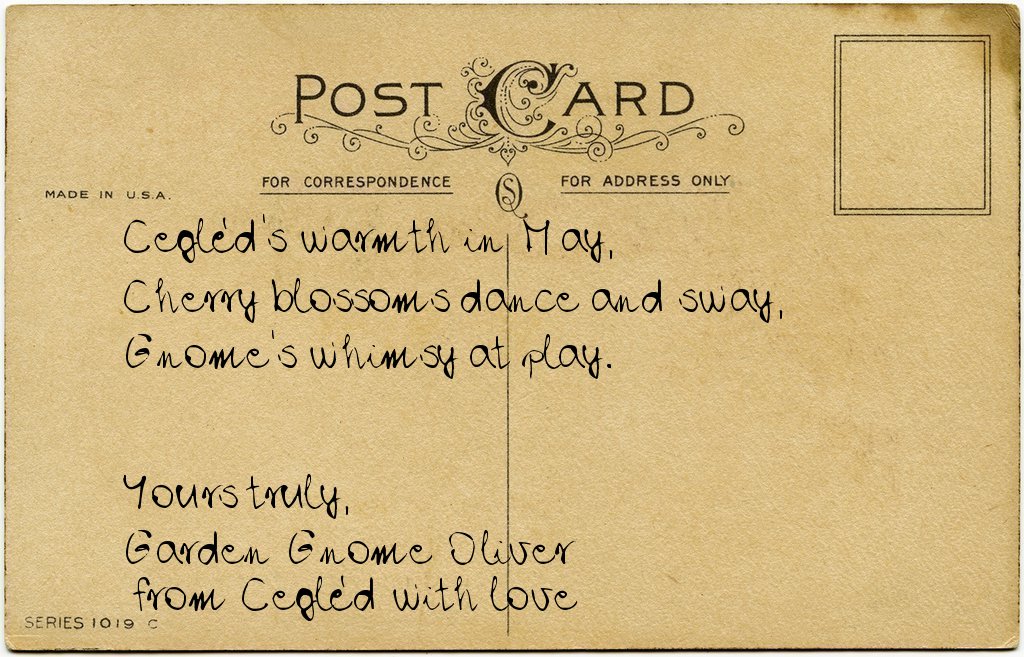 POST CARD
FOR CORRESPONDENCE
FOR ADDRESS ONLY
MADE IN U.S.A.
Cegléd's warmth in May,
Cherry blossoms dance and sway,
Gnome's whimsy at play.
Yours truly,
Garden Gnome Oliver
from Cegléd with love
SERIES 1019 C